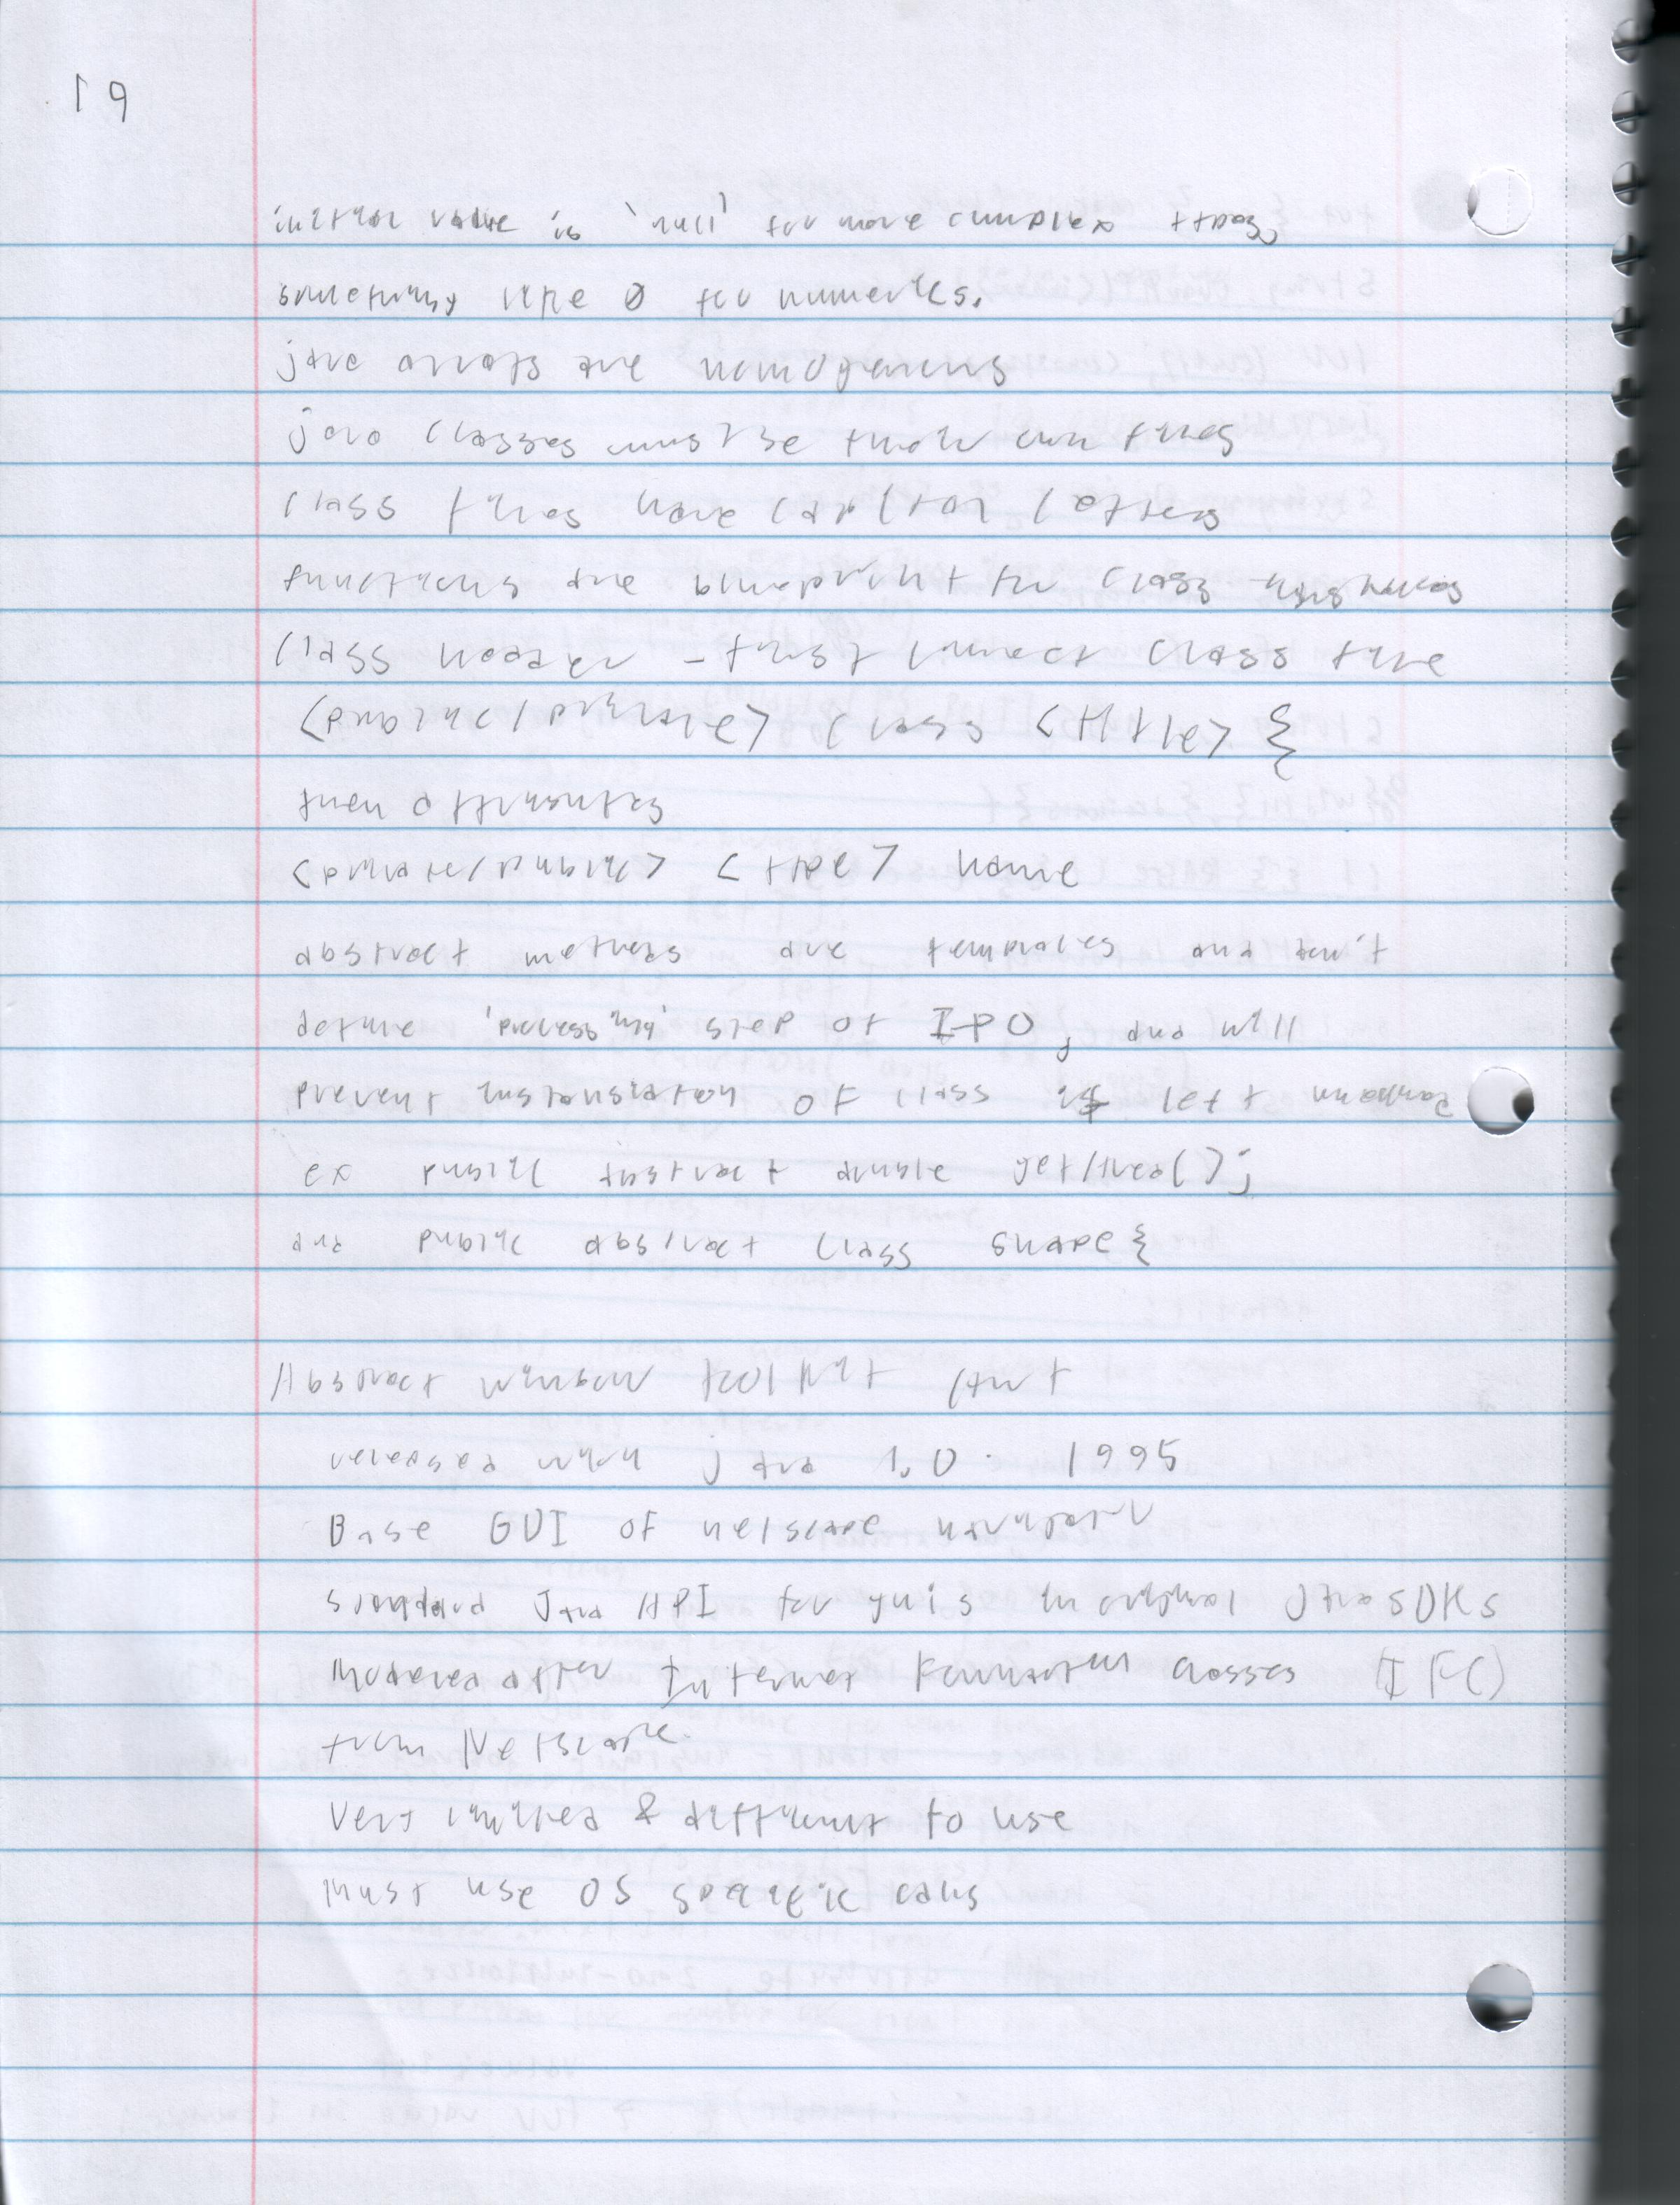 19
initial value is 'null' for more complex types
something like 0 for numerics.
java arrays are homogenous
java classes must be their own files
class files have capital letters
functions are blueprint for class
class header - first correct class file
<public/private> class <title> {
then attributes
<private/public> <type> name
abstract methods are templates and don't
define 'processing' step of IPO, and will
prevent instansiation of class if left
ex public abstract double getArea();
and public abstract class shape{
Abstract window toolkit Awt
released with Java 1.0. 1995
Base GUI of netscape navigator
standard Java API for guis in original Java SDKs
Modeled after Internet Foundation classes (IFC)
from Netscape.
Very limited & different to use
Must use OS specific calls